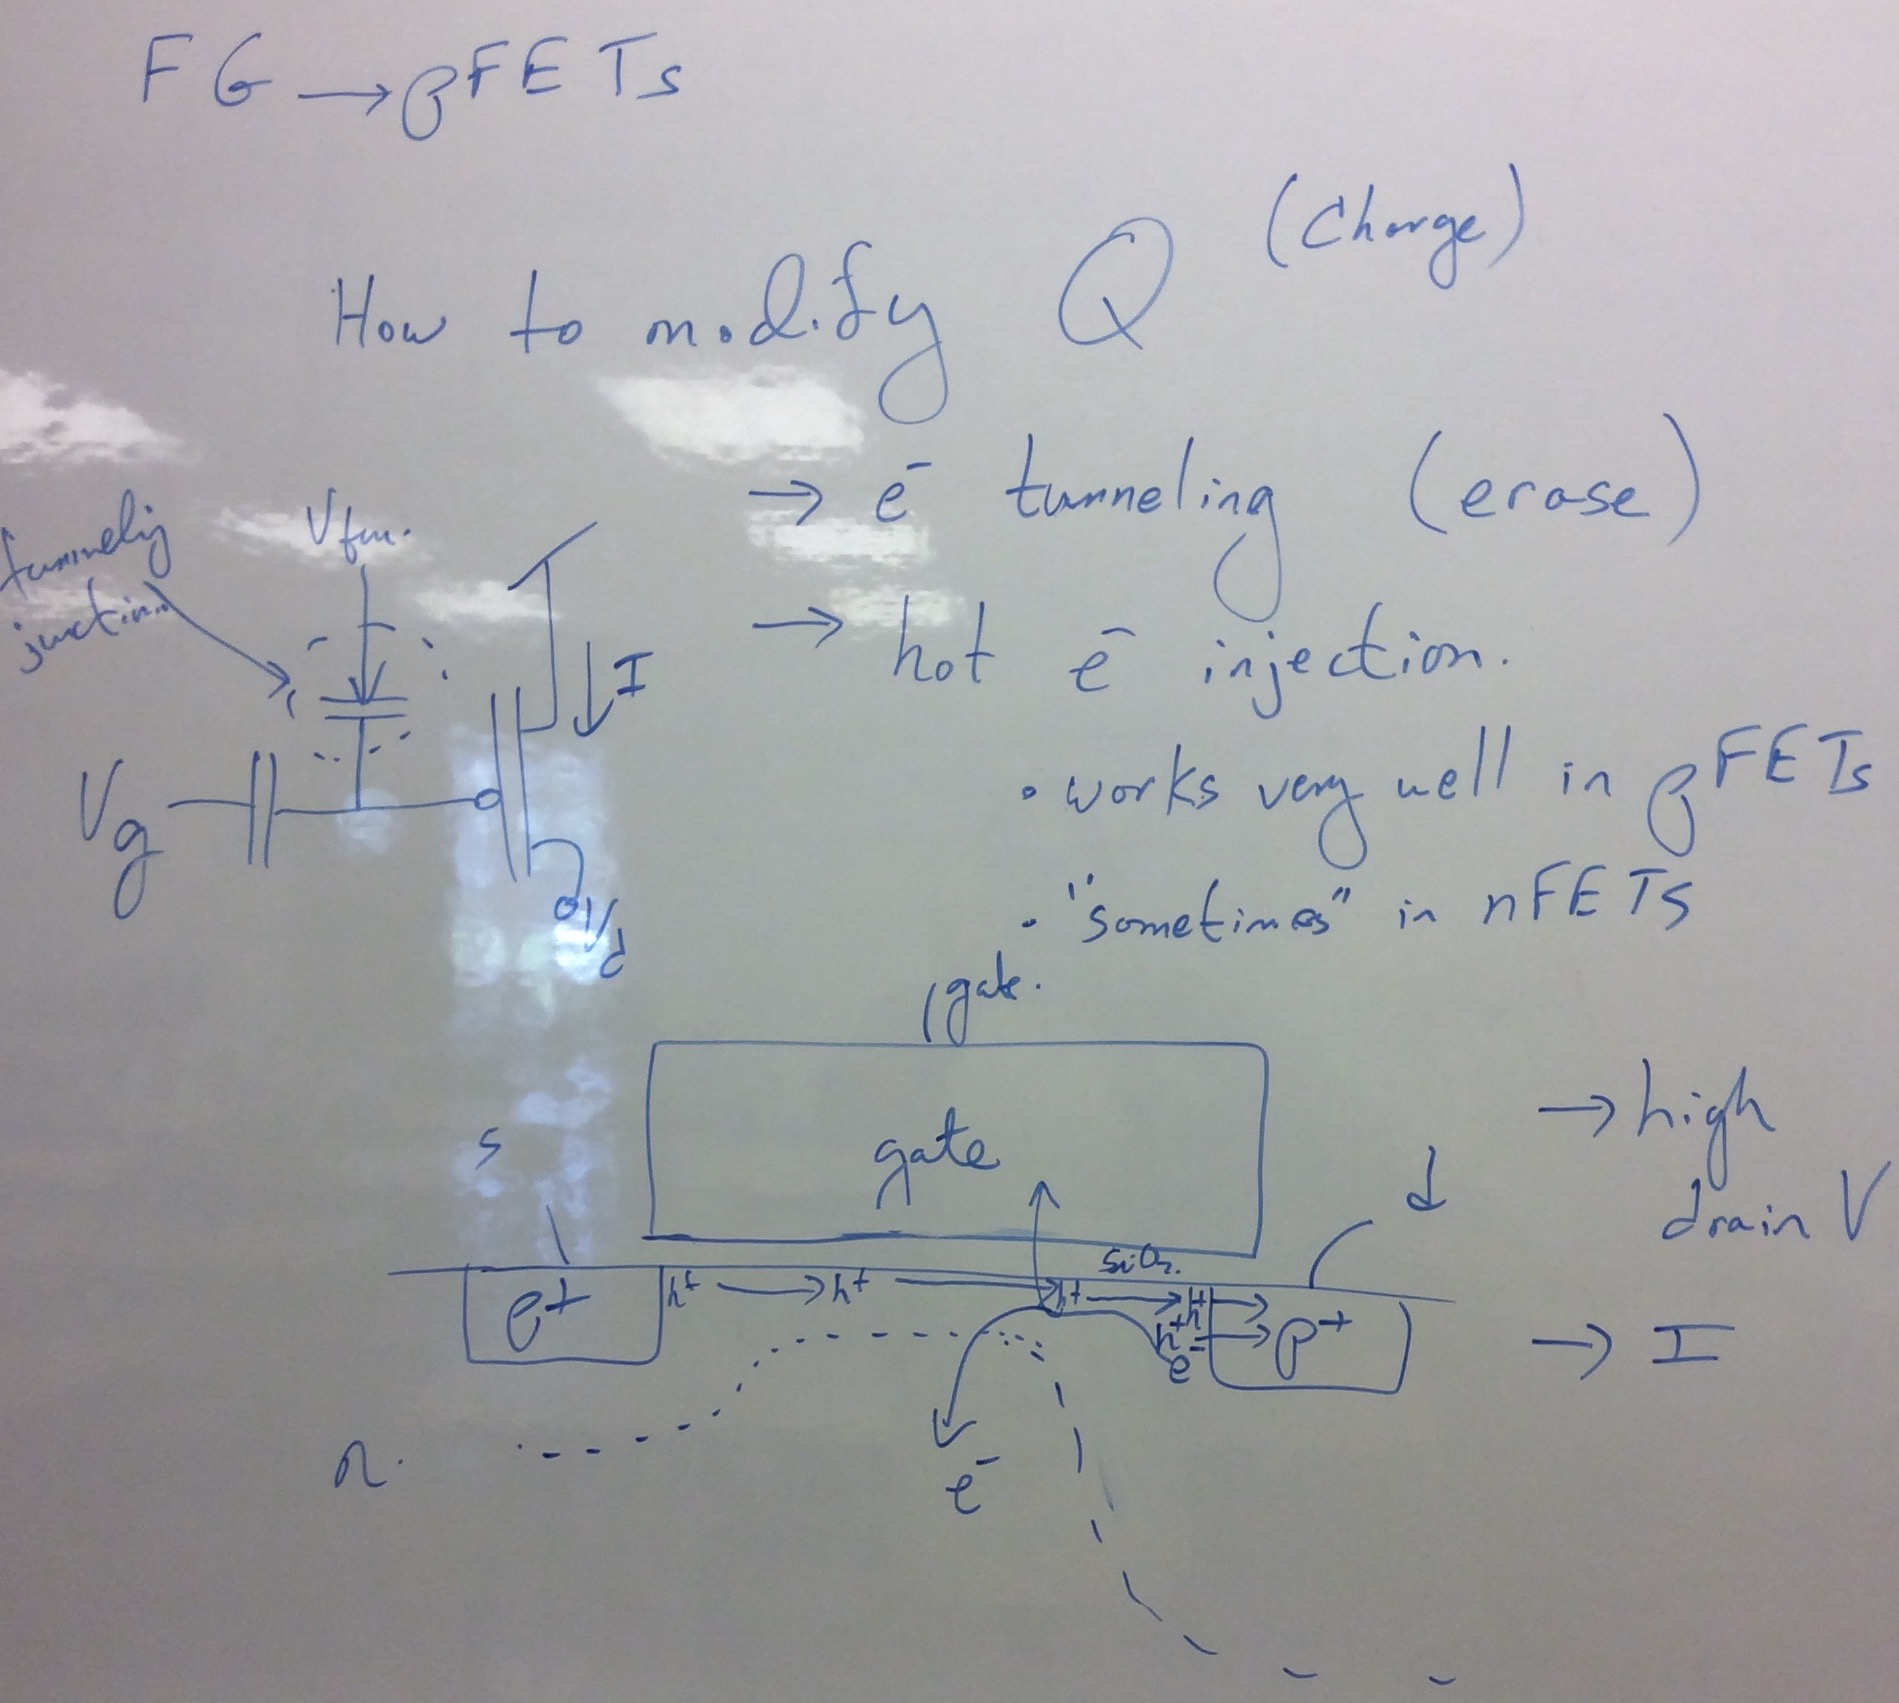 FG → pFETs
(Charge)
How to modify Q
→ e⁻ tunneling (erase)
tunneling
junction
Vtun.
→ hot e⁻ injection.
I
• works very well in pFETs
Vg
• "sometimes" in nFETs
Vd
gate.
→ high
drain V
gate
s
d
SiO₂.
p+
h+ → h+ → h+ → h+ →
h+ →
e⁻
p+
→ I
n.
e⁻